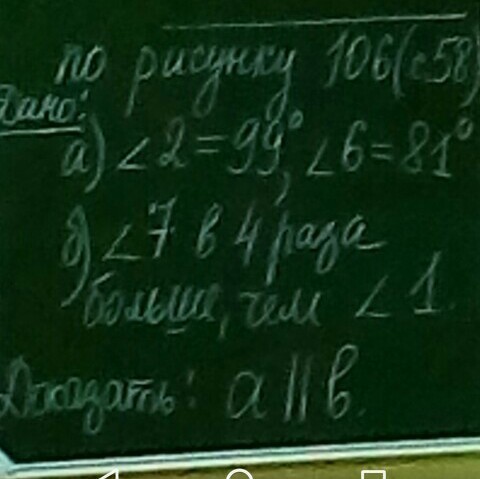 по рисунку 106(с58)
Дано:
а) ∠2=99°, ∠6=81°
б) ∠7 в 4 раза
больше, чем ∠1.
Доказать: a||b.